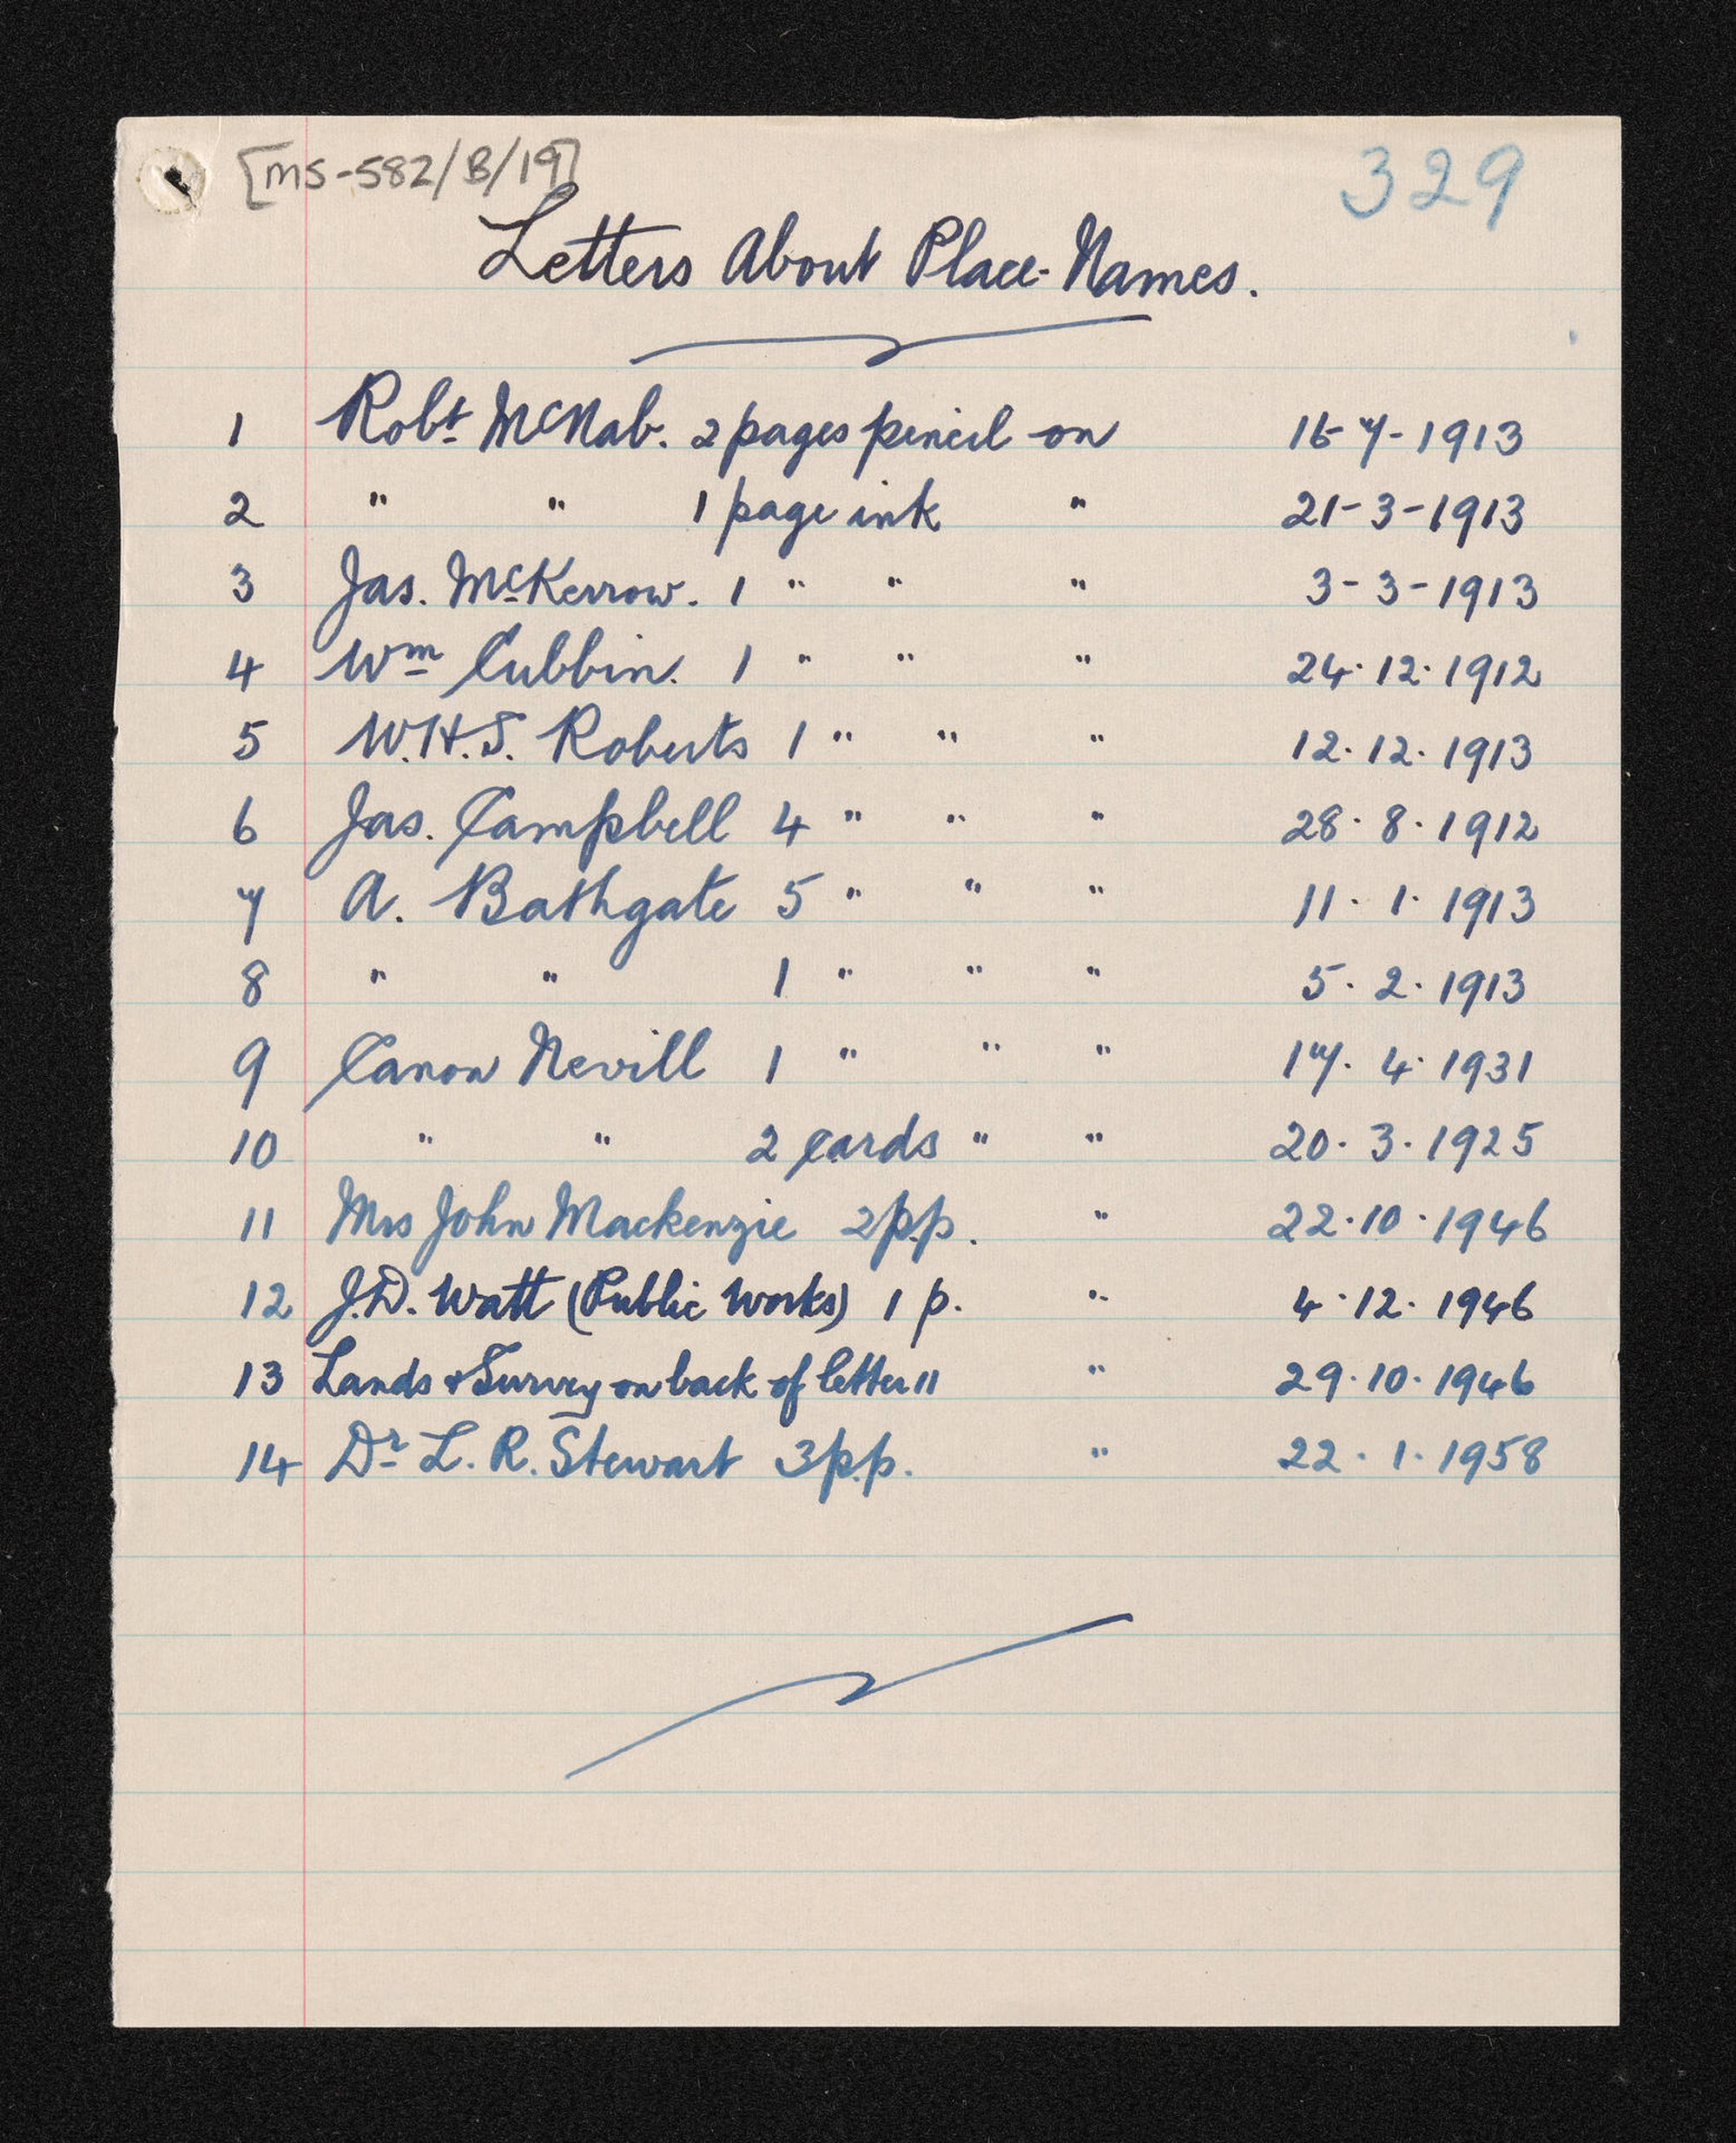 [MS-582/B/19]
329
Letters About Place-Names.
1 Robt McNab. 2 pages pencil on 16-7-1913
2 " " 1 page ink " 21-3-1913
3 Jas. McKerrow. 1 " " " 3-3-1913
4 Wm Cubbin. 1 " " " 24.12.1912
5 W.H.S. Roberts 1 " " " 12.12.1913
6 Jas. Campbell 4 " " " 28.8.1912
7 A. Bathgate 5 " " " 11.1.1913
8 " " 1 " " " 5.2.1913
9 Canon Nevill 1 " " " 17.4.1931
10 " " 2 cards " " 20.3.1925
11 Mrs John Mackenzie 2pp. " 22.10.1946
12 J.D. Watt (Public Works) 1 p. " 4.12.1946
13 Lands & Survey on back of letter 11 " 29.10.1946
14 Dr L. R. Stewart 3pp. " 22.1.1958